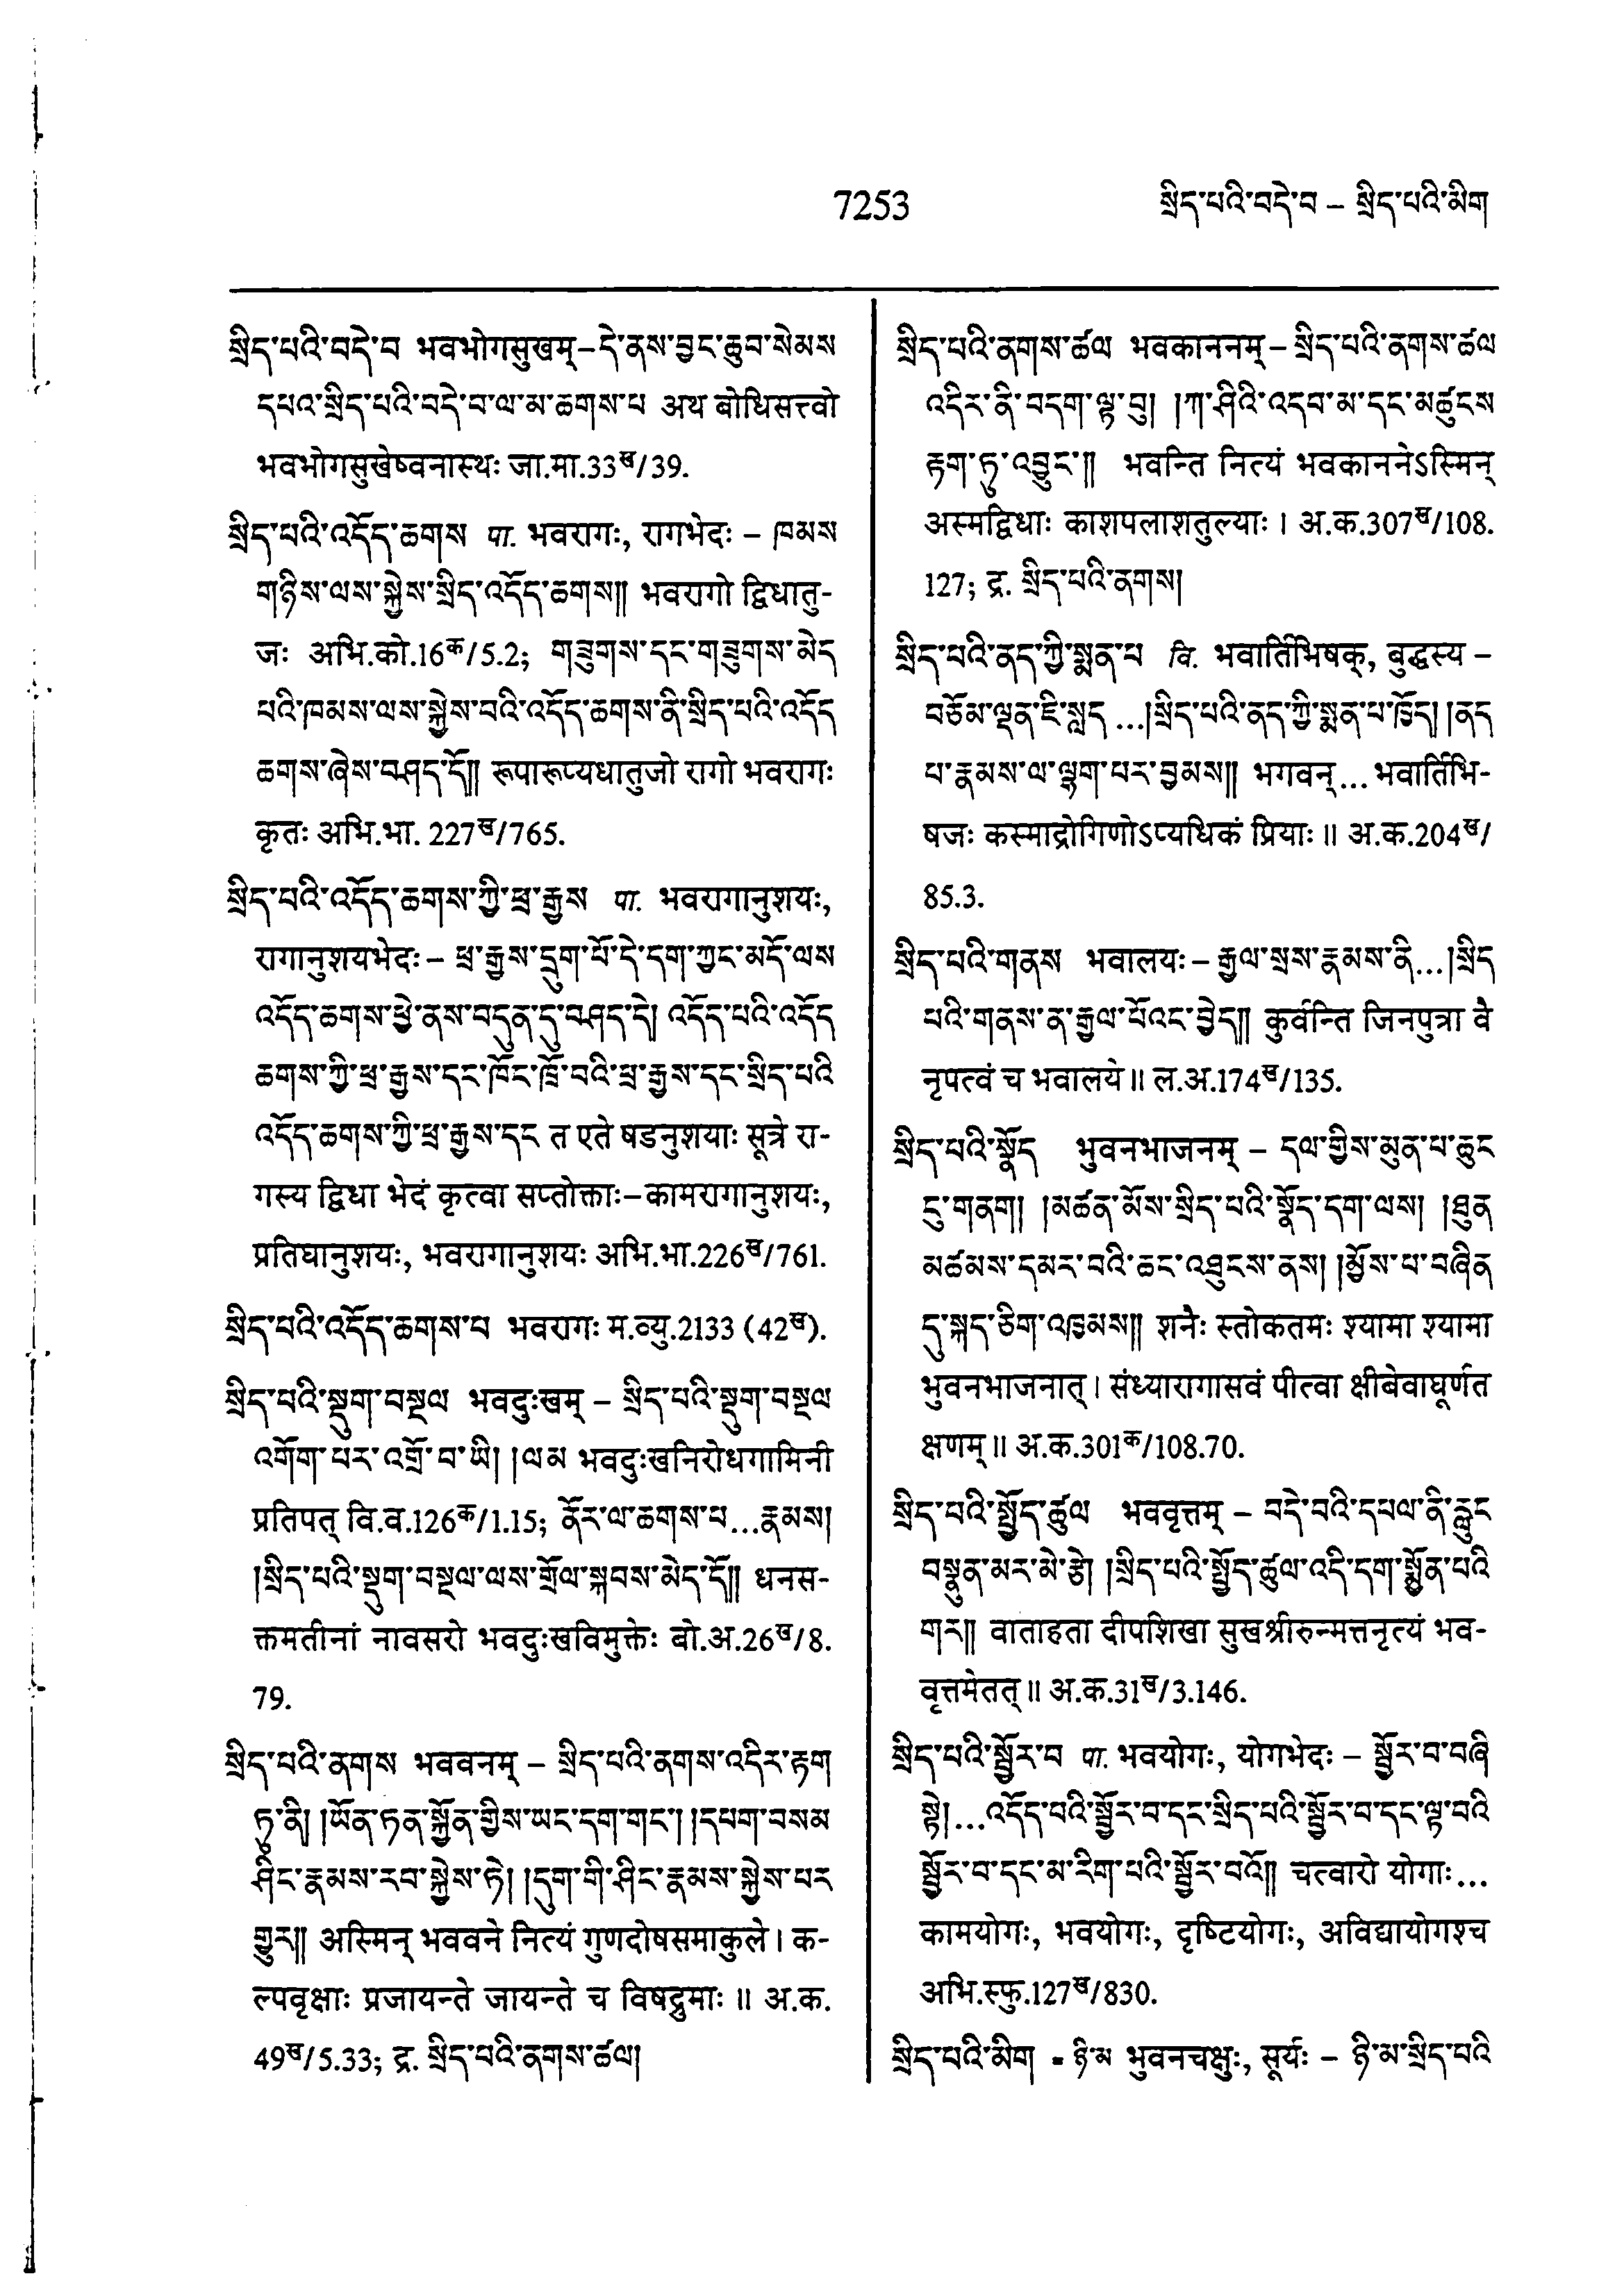 7253 སྲིད་པའི་བདེ་བ – སྲིད་པའི་མིག
སྲིད་པའི་བདེ་བ भवभोगसुखम् – དེ་ནས་བྱང་ཆུབ་སེམས
དཔའ་སྲིད་པའི་བདེ་བ་ལ་མ་ཆགས་པ अथ बोधिसत्त्वो
भवभोगसुखेष्वनास्थः जा.मा.33ख/39.
སྲིད་པའི་འདོད་ཆགས पा. भवरागः, रागभेदः – ཁམས
གཉིས་ལས་སྐྱེས་སྲིད་འདོད་ཆགས།། भवरागो द्विधातु-
जः अभि.को.16क/5.2; གཟུགས་དང་གཟུགས་མེད
པའི་ཁམས་ལས་སྐྱེས་བའི་འདོད་ཆགས་ནི་སྲིད་པའི་འདོད
ཆགས་ཞེས་བཤད་དོ།། रूपारूप्यधातुजो रागो भवरागः
कृतः अभि.भा. 227ख/765.
སྲིད་པའི་འདོད་ཆགས་ཀྱི་ཕྲ་རྒྱས पा. भवरागानुशयः,
रागानुशयभेदः – ཕྲ་རྒྱས་དྲུག་པོ་དེ་དག་ཀྱང་མདོ་ལས
འདོད་ཆགས་ཕྱེ་ནས་བདུན་དུ་བཤད་དེ། འདོད་པའི་འདོད
ཆགས་ཀྱི་ཕྲ་རྒྱས་དང་ཁོང་ཁྲོ་བའི་ཕྲ་རྒྱས་དང་སྲིད་པའི
འདོད་ཆགས་ཀྱི་ཕྲ་རྒྱས་དང त एते षडनुशयाः सूत्रे रा-
गस्य द्विधा भेदं कृत्वा सप्तोक्ताः – कामरागानुशयः,
प्रतिघानुशयः, भवरागानुशयः अभि.भा.226ख/761.
སྲིད་པའི་འདོད་ཆགས་པ भवरागः म.व्यु.2133 (42ख).
སྲིད་པའི་སྡུག་བསྔལ भवदुःखम् – སྲིད་པའི་སྡུག་བསྔལ
འགོག་པར་འགྲོ་བ་ཡི། །ལམ भवदुःखनिरोधगामिनी
प्रतिपत् वि.व.126क/1.15; ནོར་ལ་ཆགས་པ...རྣམས།
།སྲིད་པའི་སྡུག་བསྔལ་ལས་གྲོལ་སྐབས་མེད་དོ།། धनस-
क्तमतीनां नावसरो भवदुःखविमुक्तेः बो.अ.26ख/8.
79.
སྲིད་པའི་ནགས भववनम् – སྲིད་པའི་ནགས་འདིར་རྟག
ཏུ་ནི། །ཡོན་ཏན་སྐྱོན་གྱིས་ཡང་དག་གང་། །དཔག་བསམ
ཤིང་རྣམས་རབ་སྐྱེས་ཏེ། །དུག་གི་ཤིང་རྣམས་སྐྱེས་པར
གྱུར།། अस्मिन् भववने नित्यं गुणदोषसमाकुले। क-
ल्पवृक्षाः प्रजायन्ते जायन्ते च विषद्रुमाः ॥ अ.क.
49ख/5.33; द्र. སྲིད་པའི་ནགས་ཚལ།
སྲིད་པའི་ནགས་ཚལ भवकाननम् – སྲིད་པའི་ནགས་ཚལ
འདིར་ནི་བདག་ལྟ་བུ། །ཀ་ཤིའི་འདབ་མ་དང་མཚུངས
རྟག་ཏུ་འབྱུང་།། भवन्ति नित्यं भवकाननेऽस्मिन्
अस्मद्विधाः काशपलाशतुल्याः । अ.क.307ख/108.
127; द्र. སྲིད་པའི་ནགས།
སྲིད་པའི་ནད་ཀྱི་སྨན་པ वि. भवार्तिभिषक्, बुद्धस्य –
བཅོམ་ལྡན་ཇི་སླད ...།སྲིད་པའི་ནད་ཀྱི་སྨན་པ་ཁྱོད། །ནད
པ་རྣམས་ལ་ལྷག་པར་བྱམས།། भगवन्... भवार्तिभि-
षजः कस्माद्रोगिणोऽप्यधिकं प्रियाः ॥ अ.क.204ख/
85.3.
སྲིད་པའི་གནས भवालयः – རྒྱལ་སྲས་རྣམས་ནི...།སྲིད
པའི་གནས་ན་རྒྱལ་པོའང་བྱེད།། कुर्वन्ति जिनपुत्रा वै
नृपत्वं च भवालये ॥ ल.अ.174ख/135.
སྲིད་པའི་སྣོད भुवनभाजनम् – དལ་གྱིས་མུན་པ་ཆུང
ངུ་གནག། །མཚན་མོས་སྲིད་པའི་སྣོད་དག་ལས། །ཐུན
མཚམས་དམར་བའི་ཆང་འཐུངས་ནས། །མྱོས་པ་བཞིན
དུ་སྐད་ཅིག་འཁྱམས།། शनैः स्तोकतमः श्यामा श्यामा
भुवनभाजनात्। संध्यारागासवं पीत्वा क्षीबेवाघूर्णत
क्षणम् ॥ अ.क.301क/108.70.
སྲིད་པའི་སྤྱོད་ཚུལ भववृत्तम् – བདེ་བའི་དཔལ་ནི་རླུང
བསྣུན་མར་མེ་རྩེ། །སྲིད་པའི་སྤྱོད་ཚུལ་འདི་དག་སྨྱོན་པའི
གར།། वाताहता दीपशिखा सुखश्रीरुन्मत्तनृत्यं भव-
वृत्तमेतत् ॥ अ.क.31ख/3.146.
སྲིད་པའི་སྦྱོར་བ पा. भवयोगः, योगभेदः – སྦྱོར་བ་བཞི
སྟེ།...འདོད་པའི་སྦྱོར་བ་དང་སྲིད་པའི་སྦྱོར་བ་དང་ལྟ་བའི
སྦྱོར་བ་དང་མ་རིག་པའི་སྦྱོར་བའོ།། चत्वारो योगाः...
कामयोगः, भवयोगः, दृष्टियोगः, अविद्यायोगश्च
अभि.स्फु.127ख/830.
སྲིད་པའི་མིག = ཉི་མ भुवनचक्षुः, सूर्यः – ཉི་མ་སྲིད་པའི